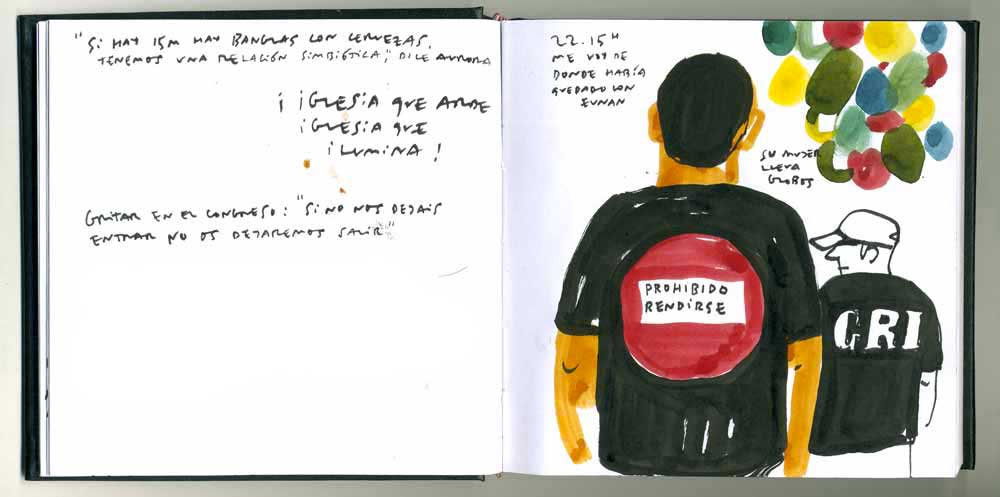 "Si HAY 15M HAY BANGLAS CON CERVEZAS.
TENEMOS UNA RELACIÓN SIMBIÓTICA", DICE AURORA
¡ IGLESIA QUE ARDE
IGLESIA QUE
ILUMINA !
GRITAR EN EL CONGRESO: "SI NO NOS DEJAIS
ENTRAR NO OS DEJAREMOS SALIR"
22.15H
ME VOY DE
DONDE HABÍA
QUEDADO CON
SU MUJER
LLEVA
GLOBOS
PROHIBIDO
RENDIRSE
GRI